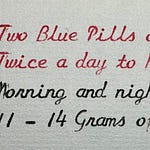 Two Blue Pills
Twice a day to
Morning and nig
11 - 14 Grams of